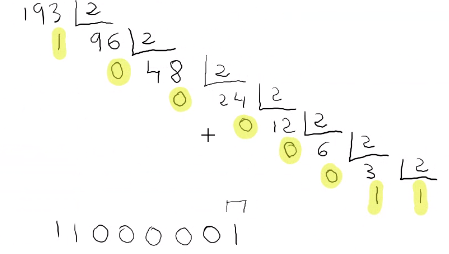 193 2
1 96 2
0 48 2
0 24 2
+ 0 12 2
0 6 2
0 3 2
1 1
11000001